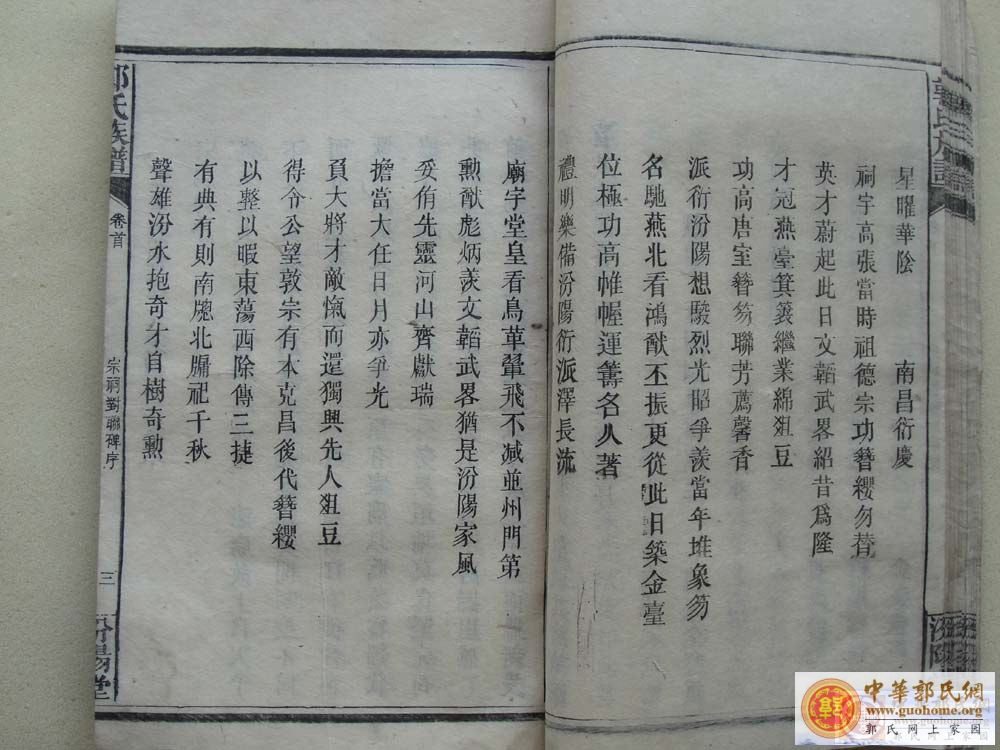 星曜華陰　南昌衍慶
祠宇高張當時祖德宗功簪纓勿替
英才蔚起此日文韜武畧紹昔爲隆
才冠燕臺箕裘繼業綿俎豆
功高唐室簪笏聯芳薦馨香
派衍汾陽想駿烈光昭爭羨當年堆象笏
名馳燕北看鴻猷丕振更從此日築金臺
位極功高帷幄運籌名人著
禮明樂備汾陽衍派澤長流
廟宇堂皇看鳥革翬飛不減並州門第
勲猷彪炳羨文韜武畧猶是汾陽家風
妥侑先靈河山齊獻瑞
擔當大任日月亦爭光
負大將才敵愾而還獨興先人俎豆
得令公望敦宗有本克昌後代簪纓
以整以暇東蕩西除傳三捷
有典有則南牕北牖祀千秋
聲雄汾水抱奇才自樹奇勲
郭氏族譜
卷首
宗祠對聯碑序
三
汾陽堂
中華郭氏網
www.guohome.org
郭氏网上家园